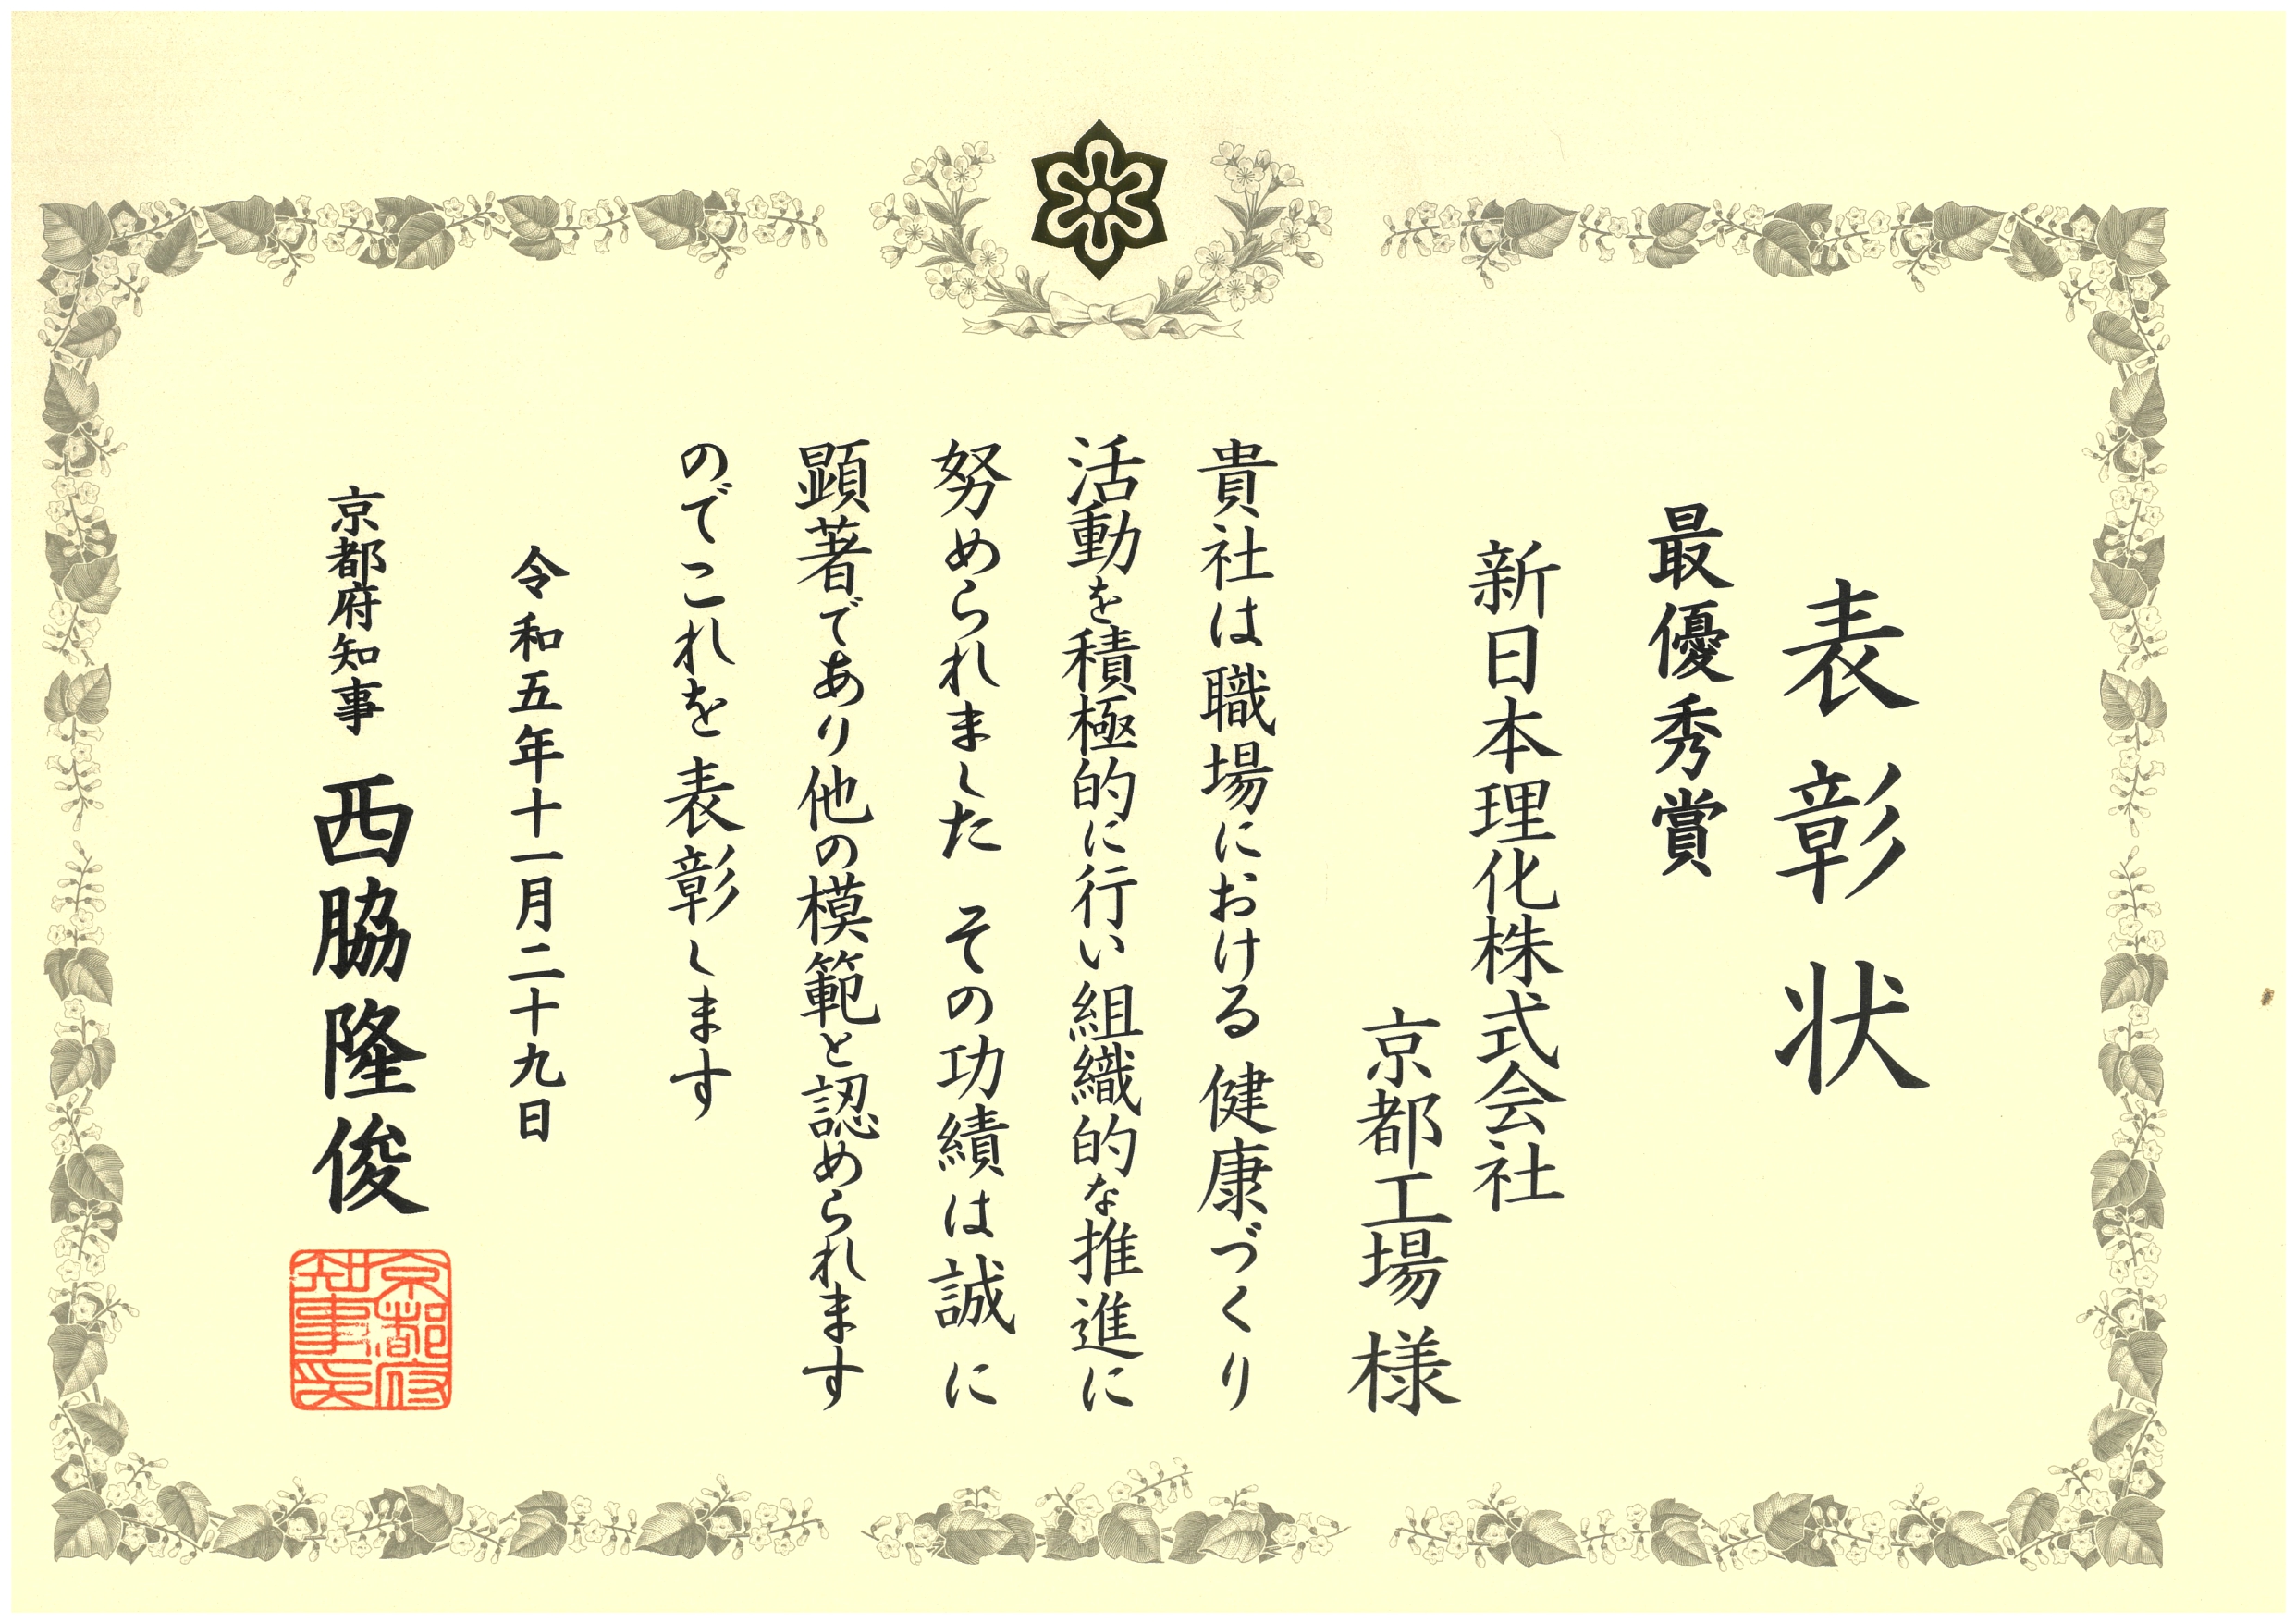 表彰状
最優秀賞
新日本理化株式会社
京都工場様
貴社は職場における健康づくり
活動を積極的に行い組織的な推進に
努められました その功績は誠に
顕著であり他の模範と認められます
のでこれを表彰します
令和五年十一月二十九日
京都府知事 西脇隆俊
京都府
知事印